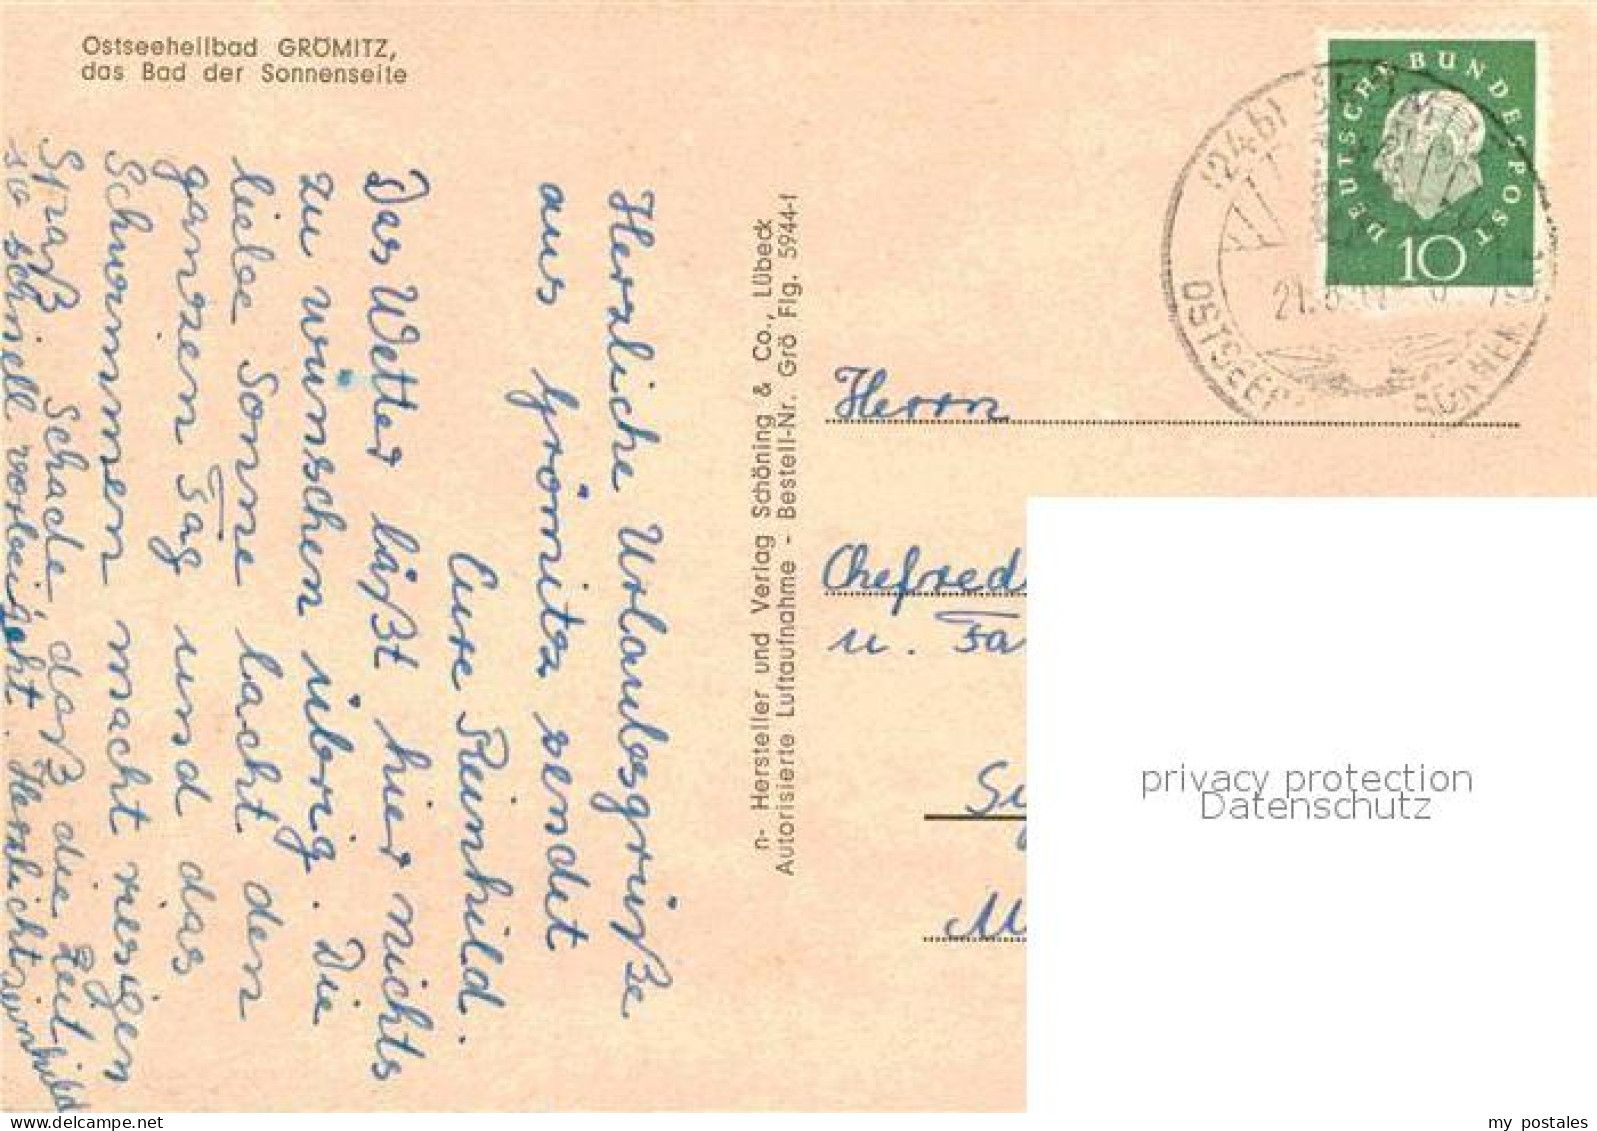 Ostseeheilbad GRÖMITZ,
das Bad der Sonnenseite
Herzliche Urlaubsgrüße
aus Grömitz sendet
Eure Reinhild.
Das Wetter läßt hier nichts
zu wünschen übrig. Die
liebe Sonne lacht den
ganzen Tag und das
Schwimmen macht riesigen
Spaß. Schade, daß die Zeit
so schnell vorbeigeht. Herzlichst Reinhild
n- Hersteller und Verlag Schöning & Co., Lübeck
Autorisierte Luftaufnahme - Bestell-Nr. Grö Flg. 5944-1
DEUTSCHE BUNDESPOST
10
(24b)
OSTSEE
Herrn
Chefred
u. Fa
privacy protection
Datenschutz
my postales